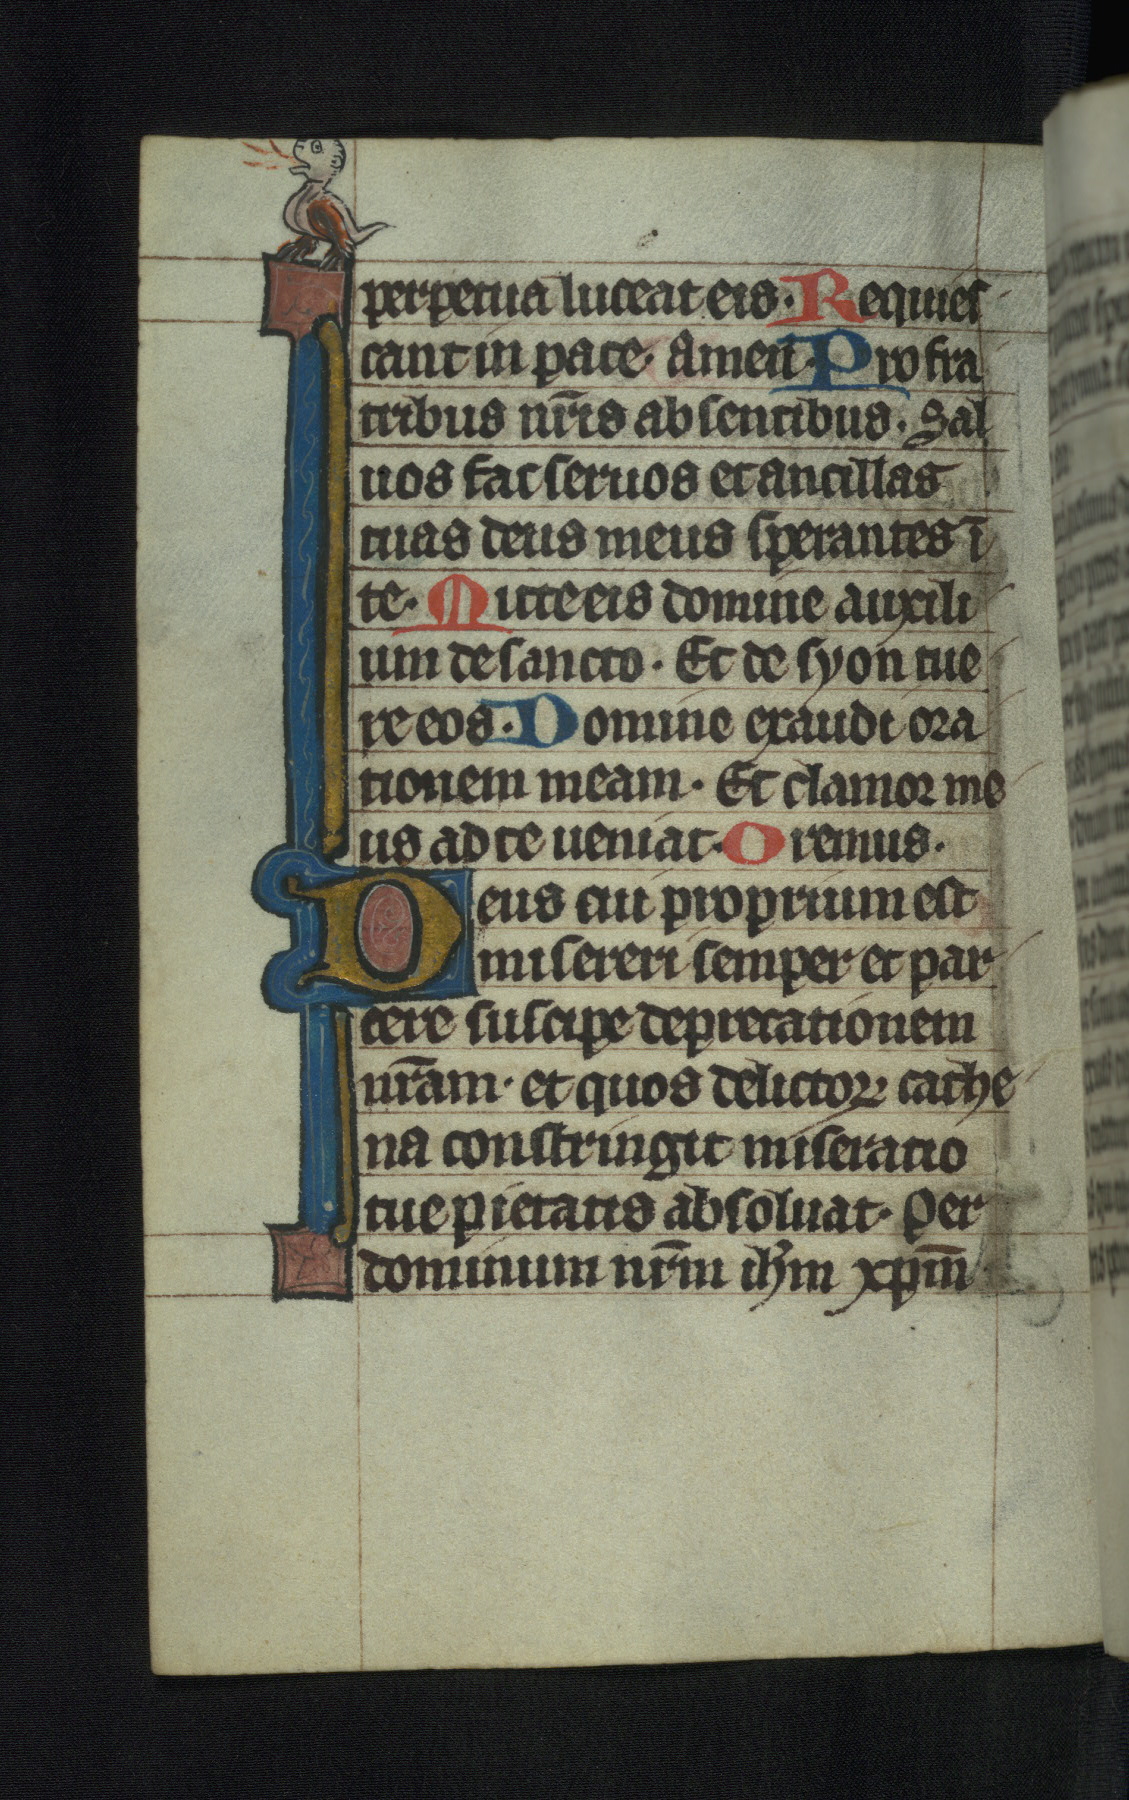 perpetua luceat eis. Requies
cant in pace. Amen. Pro fra
tribus nr̄is absentibus. Sal
uos fac seruos et ancillas
tuas deus meus sperantes ī
te. Mitte eis domine auxili
um de sancto. Et de syon tue
re eos. Domine exaudi ora
tionem meam. Et clamor me
us ad te ueniat. Oremus.
Deus cui proprium est
misereri semper et par
cere suscipe deprecationem
nr̄am. et quos delictoꝝ cathe
na constringit miseratio
tue pietatis absoluat. Per
dominum nr̄m ih̄m xp̄m